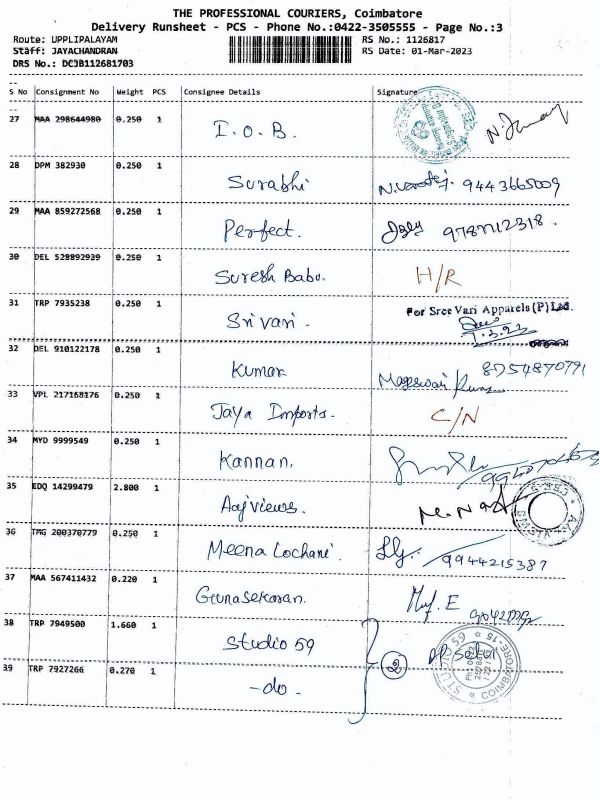 THE PROFESSIONAL COURIERS, Coimbatore
Delivery Runsheet - PCS - Phone No.:0422-3505555 - Page No.:3
Route: UPPLIPALAYAM RS No.: 1126817
Staff: JAYACHANDRAN RS Date: 01-Mar-2023
DRS No.: DCJB112681703
S No Consignment No Weight PCS Consignee Details Signature
27 MAA 298644980 0.250 1 I.O.B.
28 DPM 382930 0.250 1 Surabhi 9443665009
29 MAA 859272568 0.250 1 Perfect.
30 DEL 528892939 0.250 1 Suresh Babu. H/R
31 TRP 7935238 0.250 1 Sri vari. For Sree Vari Apparels (P) Ltd.
1.3.23
32 DEL 910122178 0.250 1 Kumar 8754870791
33 VPL 217168176 0.250 1 Jaya Imports. C/N
34 MYD 9999549 0.250 1 Kannan.
35 EDQ 14299479 2.800 1 Aaj views.
36 TMG 200370779 0.250 1 Meena Lochani. 9944215387
37 MAA 567411432 0.220 1 Gunasekaran.
38 TRP 7949500 1.660 1 Studio 59 2 STUDIO 59 COIMBATORE-15
39 TRP 7927266 0.270 1 -do-